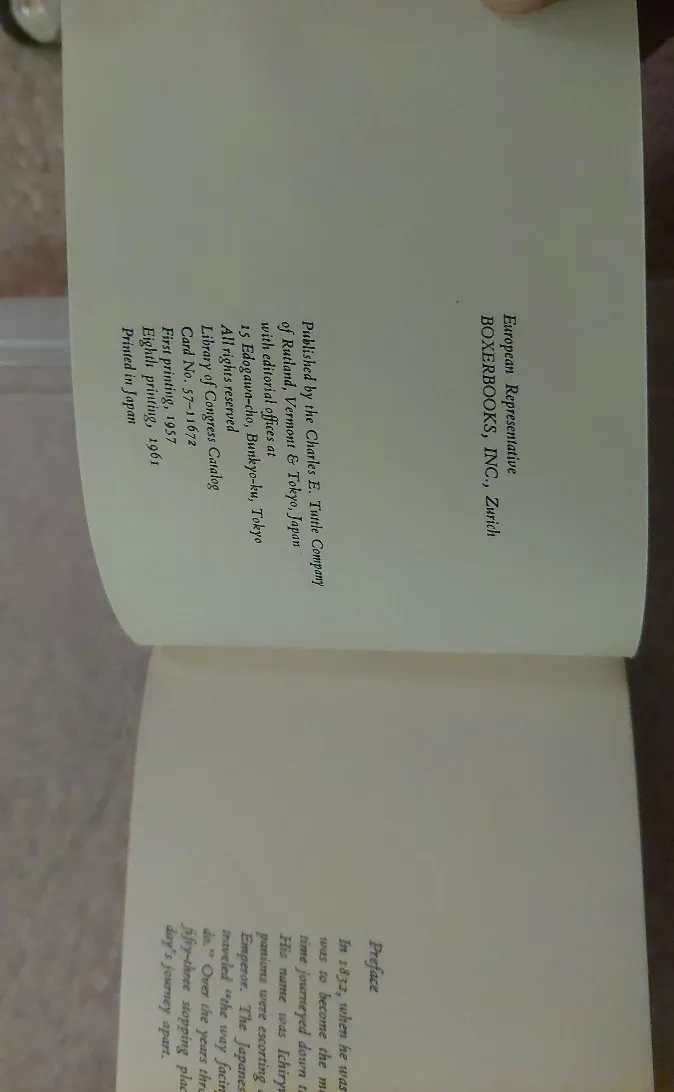 European Representative
BOXERBOOKS, INC., Zurich
Published by the Charles E. Tuttle Company
of Rutland, Vermont & Tokyo, Japan
with editorial offices at
15 Edogawa-cho, Bunkyo-ku, Tokyo
All rights reserved
Library of Congress Catalog
Card No. 57-11672
First printing, 1957
Eighth printing, 1961
Printed in Japan
Preface
In 1832, when he was
was to become the
time journeyed down
His name was
panions were escorting
Emperor. The
traveled "the way
do." Over the years
fifty-three stopping
day's journey apart.